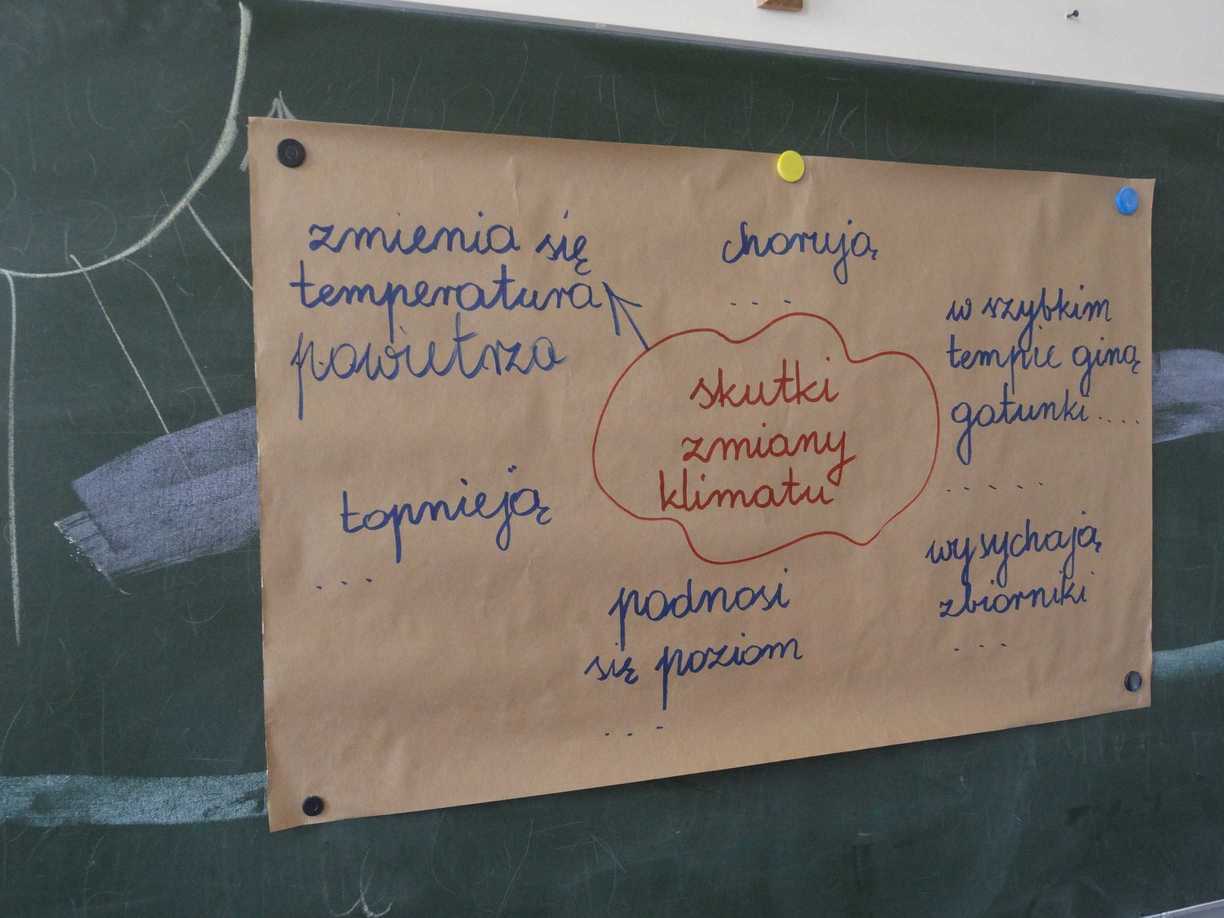 zmienia się
temperatura
powietrza
chorują
. . .
w szybkim
tempie giną
gatunki....
. . . . .
skutki
zmiany
klimatu
topnieją
. . .
wysychają
zbiorniki
. . .
podnosi
się poziom
. . .